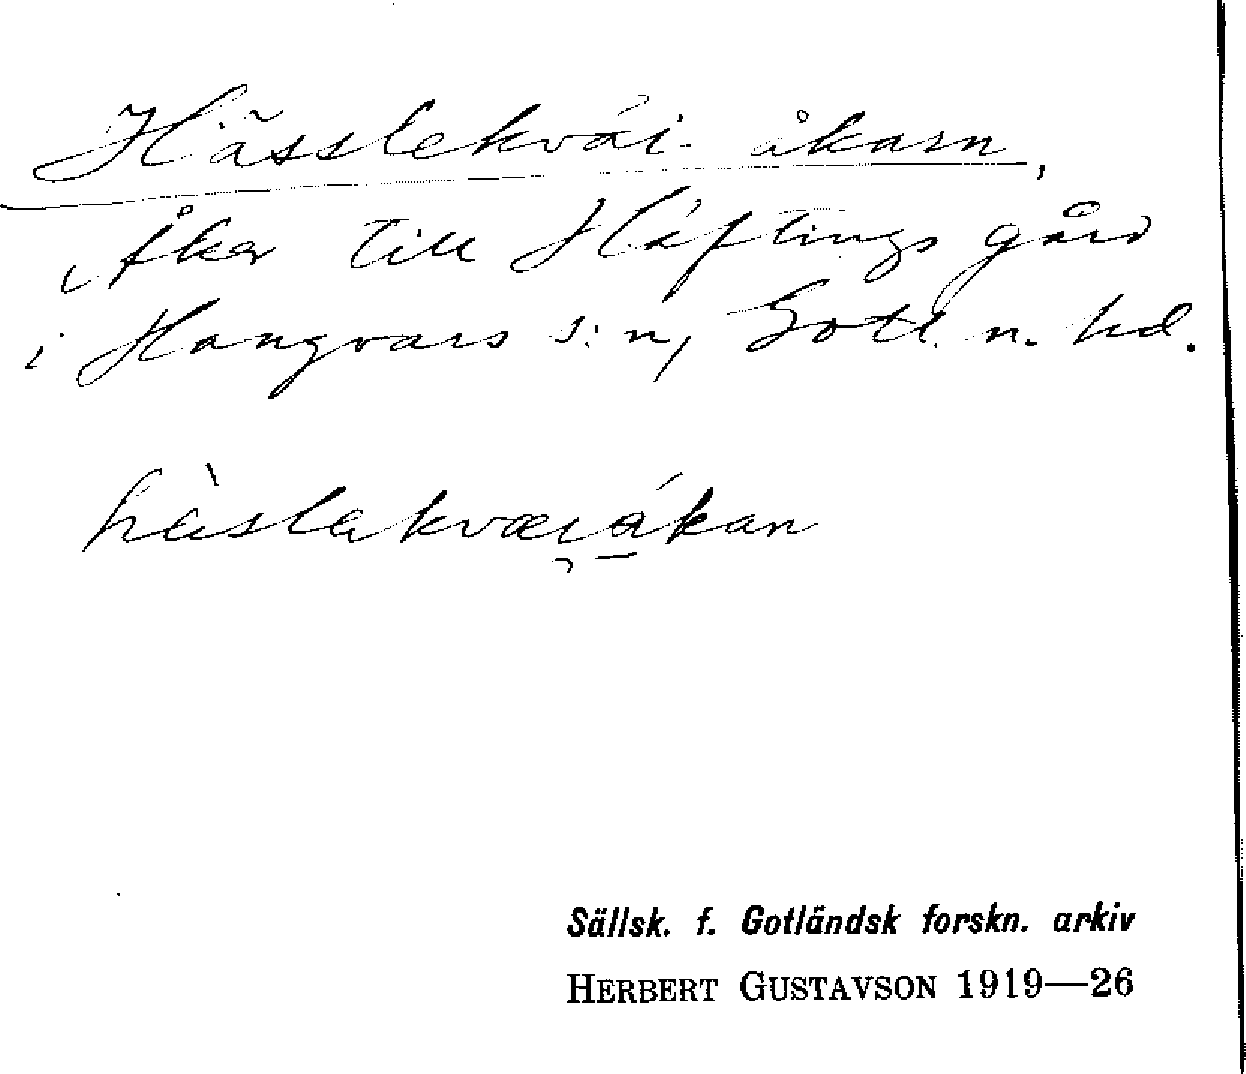 Hässlekvái-åkarn,
Åker till Häftings gård
i Hangvars s:n, Gotl. n. hd.
hèslakvæiákan
Sällsk. f. Gotländsk forskn. arkiv
HERBERT GUSTAVSON 1919—26